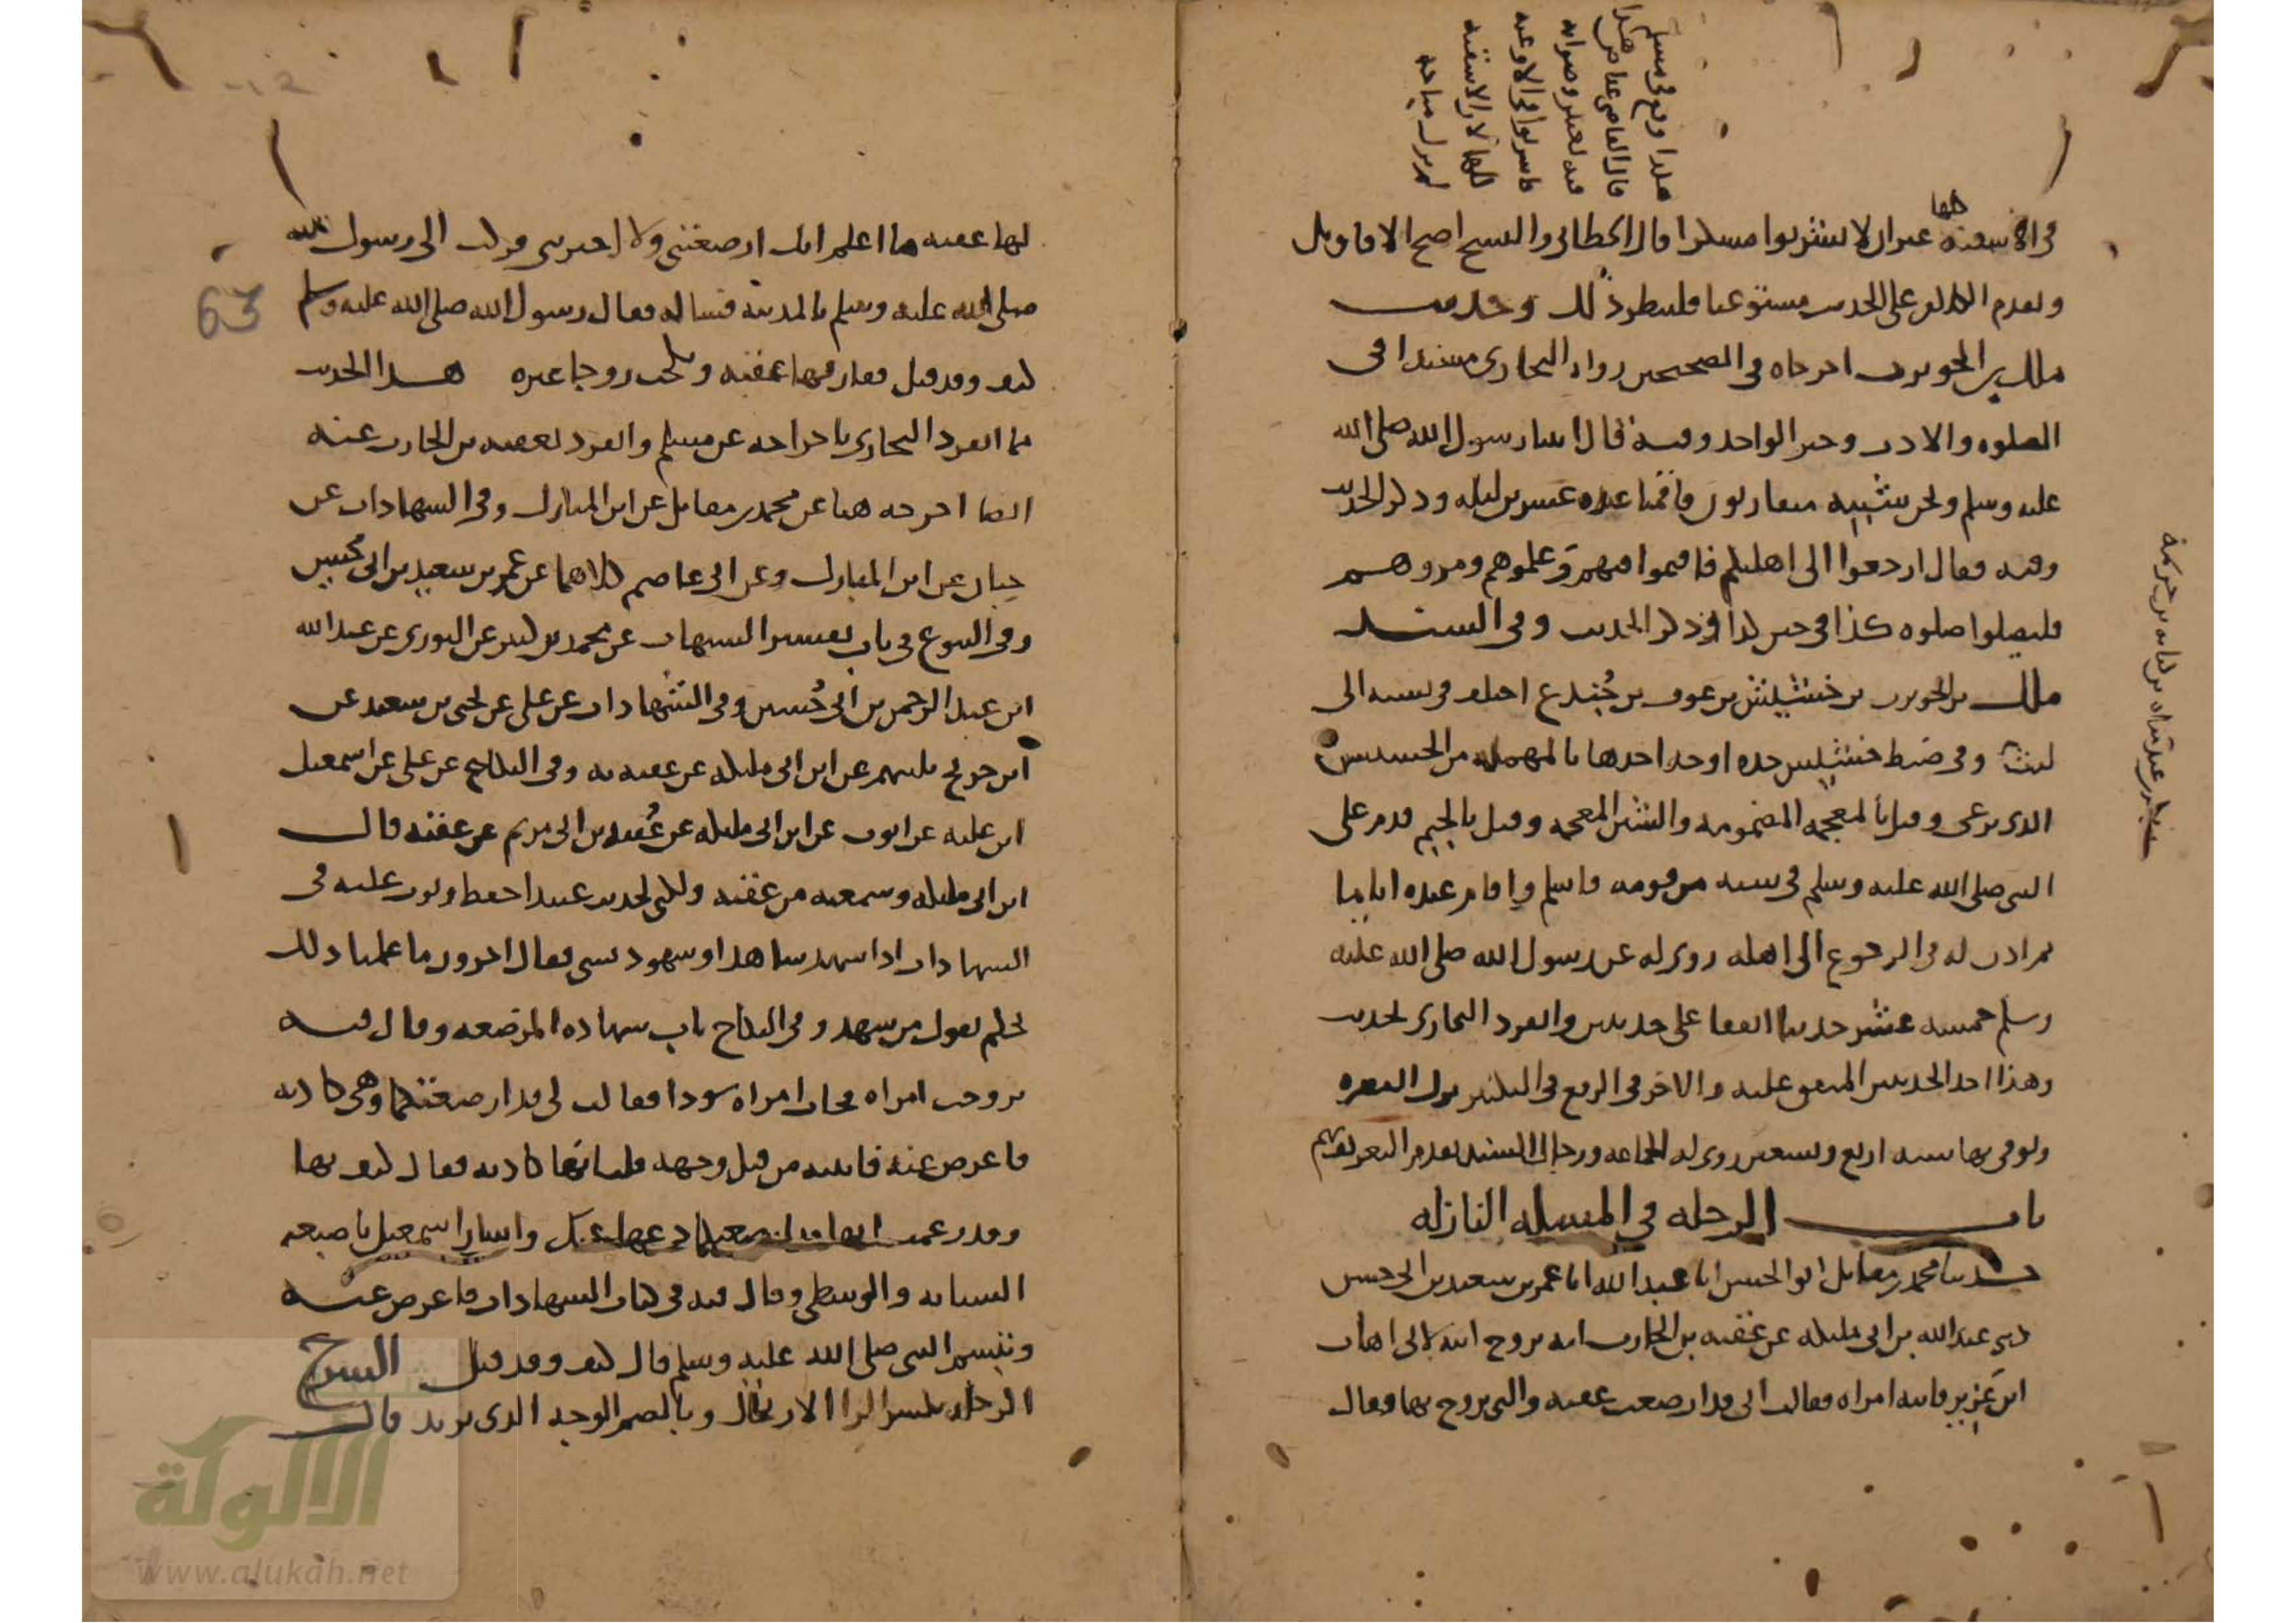 هكذا وقع في مسلم
قال القاضي عياض هذا
فيه تغيير وصوابه
فاشربوا في الأوعية
كلها لأن الأسقية
لم تزل مباحة
في الأسقية كلها غير ان لا تشربوا مسكرا قال الخطابي والنسخ اصح الاقاويل
وتقدم الكلام على الحديث مستوعبا فلينظر ذلك وحديث
ملك بن الحويرث اخرجاه في الصحيحين رواه البخاري مسندا في
الصلوه والادب وخبر الواحد وفيه قال اتينا رسول الله صلى الله
عليه وسلم ونحن شببة متقاربون فاقمنا عنده عشرين ليله وذكر الحديث
وفيه فقال ارجعوا الى اهليكم فاقيموا فيهم وعلموهم ومروهم
فليصلوا صلوه كذا في حين كذا وذكر الحديث وفي السند
ملك بن الحويرث بن خشيش بن عوف بن جندع اختلف في نسبه الى
ليث وفي ضبط خشيش جده اوجه احدها بالمهملة من الحسيس
الذي يرعى وقيل بالمعجمه المضمومه والشين المعجمه وقيل بالجيم قدم على
النبي صلى الله عليه وسلم في ستة من قومه فاسلم واقام عنده اياما
ثم اذن له في الرجوع الى اهله روي له عن رسول الله صلى الله عليه
وسلم خمسه عشر حديثا اتفقا على حديثين وانفرد البخاري بحديث
وهذا احد الحديثين المتفق عليه والاخر في الرفع في التكبير نزل البصره
وتوفي بها سنه اربع وتسعين روى له الجماعه ورجال السند تقدم التعريف بهم
باب الرحله في المسئله النازله
حدثنا محمد بن مقاتل ابو الحسن انا عبد الله انا عمر بن سعيد بن ابي حسين
حدثني عبد الله بن ابي مليكه عن عقبه بن الحارث انه تزوج ابنة لابي اهاب
ابن عزيز فاتته امراه فقالت اني قد ارضعت عقبه والتي تزوج بها فقال
لها عقبه ما اعلم انك ارضعتني ولا اخبرتني فركب الى رسول الله
صلى الله عليه وسلم بالمدينه فساله فقال رسول الله صلى الله عليه وسلم
كيف وقد قيل ففارقها عقبه ونكحت زوجا غيره هذا الحديث
مما انفرد البخاري باخراجه عن مسلم وانفرد بعقبه بن الحارث عنه
ايضا اخرجه هنا عن محمد بن مقاتل عن ابن المبارك وفي الشهادات عن
حبان عن ابن المبارك وعن ابي عاصم كلاهما عن عمر بن سعيد بن ابي حسين
وفي البيوع في باب تفسير الشبهات عن محمد بن كثير عن الثوري عن عبد الله
ابن عبد الرحمن بن ابي حُسين وفي الشهادات عن علي عن يحيى بن سعيد عن
ابن جريج ثلثتهم عن ابن ابي مليكه عن عقبه به وفي النكاح عن علي عن اسمعيل
ابن عليه عن ايوب عن ابن ابي مليكه عن عُبيد بن ابي مريم عن عقبه قال
ابن ابي مليكه وسمعته من عقبه ولكني لحديث عبيد احفظ وبوب عليه في
الشهادات اذا شهد شاهد او شهود بشي فقال اخرون ما علمنا ذلك
يحكم بقول من شهد وفي النكاح باب شهاده المرضعه وقال فيه
تزوجت امراه فجات امراه سودا فقالت لي قد ارضعتكما وهي كاذبه
فاعرض عنه فاتيته من قبل وجهه قلت انها كاذبه فقال كيف بها
وقد زعمت انها قد ارضعتكما دعها عنك واشار اسمعيل باصبعيه
السبابه والوسطى وقال فيه في كتاب الشهادات فاعرض عنه
وتبسم النبي صلى الله عليه وسلم قال كيف وقد قيل الشرح
الرحله بكسر الرا الارتحال وبالضم الوجه الذي تريد قال
63
شبكة
الألوكة
www.alukah.net